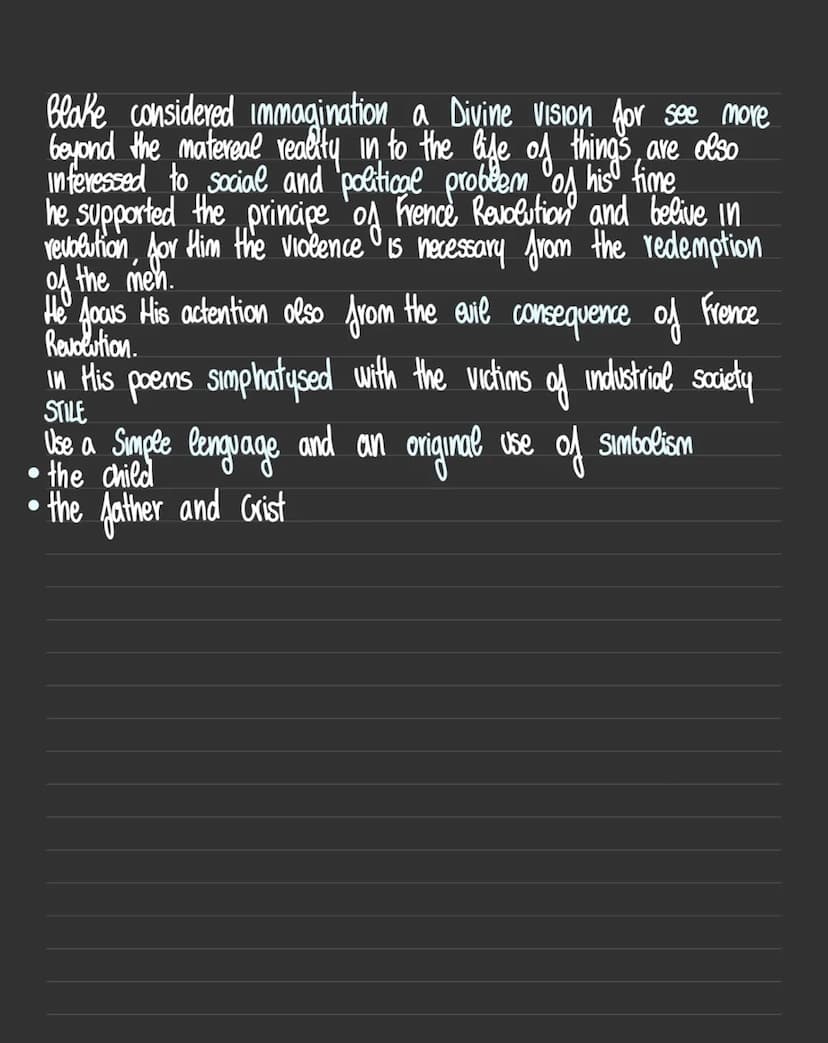 Blake considered immagination a Divine vision for see more
beyond the matereal reality in to the life of things, are also
interessed to social and political problem of his time
he supported the principe of Frence Revolution and belive in
revolution, for Him the violence is necessary from the redemption
of the men.
He focus His actention also from the evil consequence of Frence
Revolution.
in His poems simphatysed with the victims of industrial society
STILE
Use a Simple lenguage and an original use of simbolism
• the child
• the father and Crist